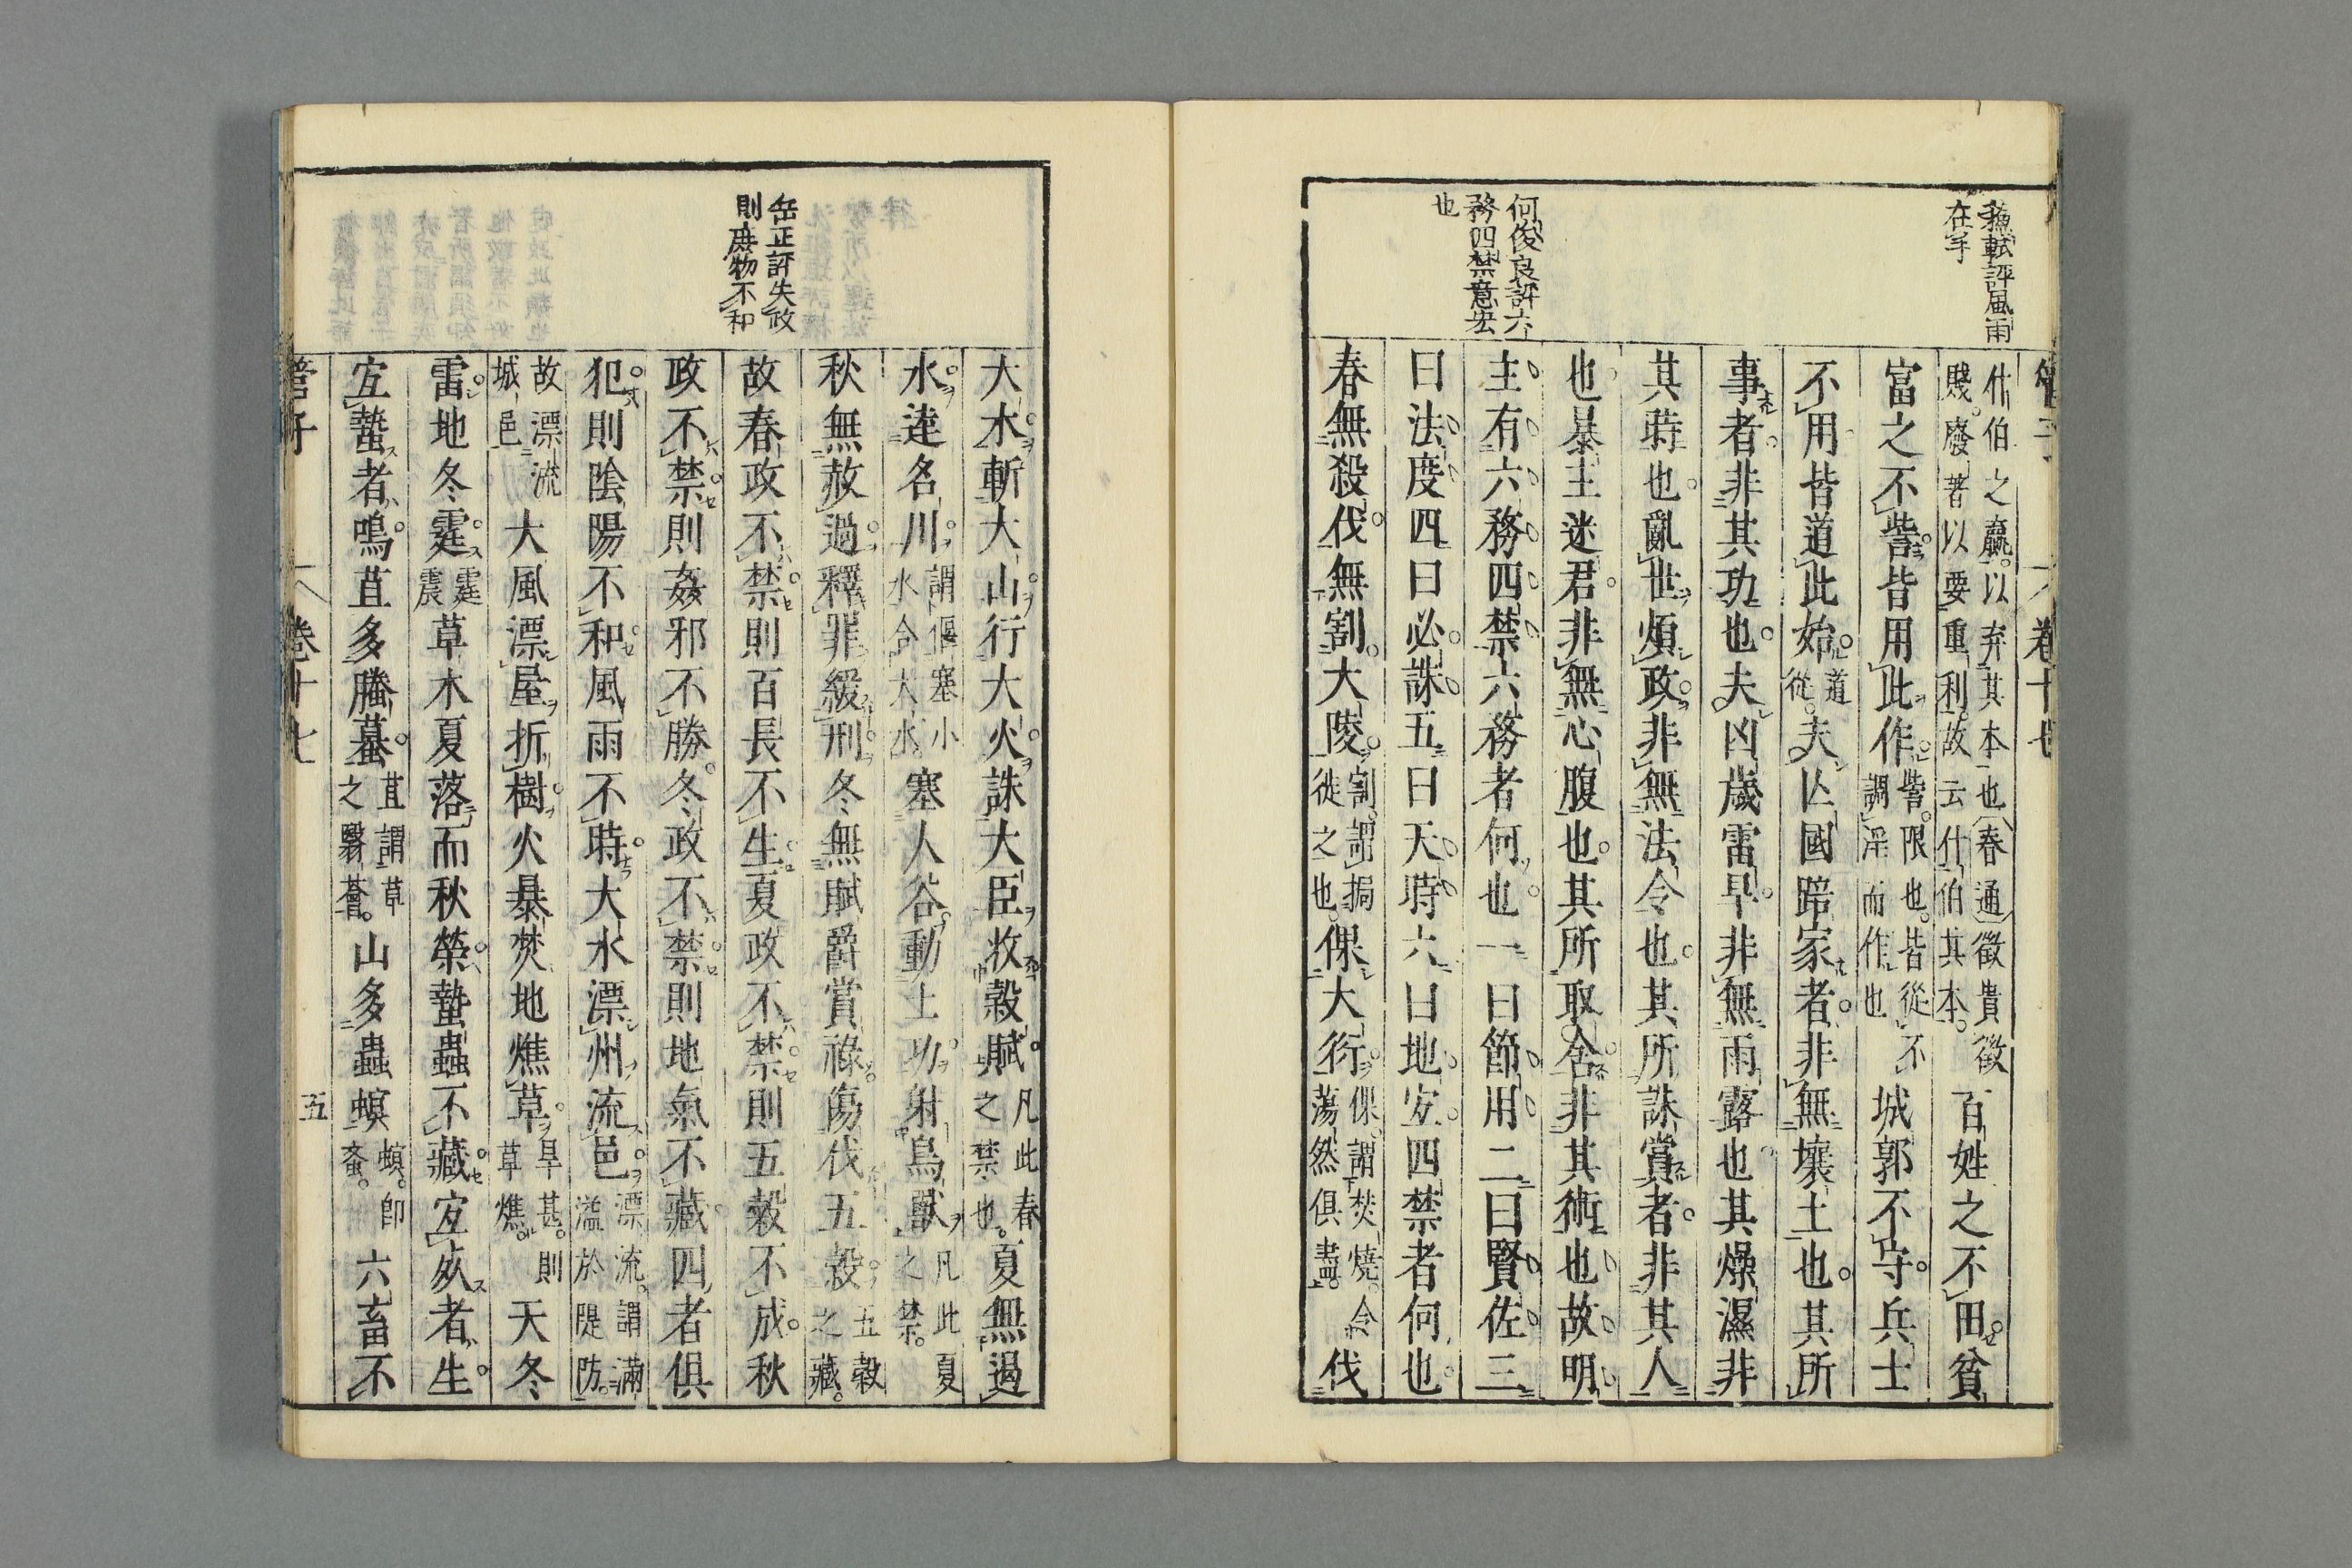 管子 卷十七
蘇軾評風雨
在手
何俊良評六
務四禁意宏
也
什伯之贏。以弃其本也(春通)徵貴徵賤。廢著以要重利。故云什伯其本。百姓之不田貧
富之不訾。皆用此作。訾。限也。皆從不調淫而作也城郭不守。兵士
不用皆道此始。道從。夫亾國踣家者。非無壤土也。其所
事者。非其功也。夫凶歲雷旱。非無雨露也。其燥濕非
其時也。亂世煩政。非無法令也。其所誅賞者。非其人
也。暴主迷君。非無心腹也。其所取舍。非其術也故明
主有六務四禁六務者何也。一曰節用二曰賢佐三
曰法度四曰必誅五曰天時六曰地宐。四禁者何也。
春無殺伐。無割。大陵。割。謂掘徙之也。倮大衍。倮。謂焚燒。令蕩然俱盡。伐
岳正評失政
則庶物不和
大木。斬大山。行大火。誅大臣。收穀賦。凡此春之禁也。夏無遏
水。達名川。謂偃塞小水合大水塞大谷。動土功。射鳥獸。凡此夏之禁。
秋無赦過。釋罪。緩刑。冬無賦爵賞祿。傷伐五穀。五穀之藏。
故春政不禁。則百長不生。夏政不禁。則五穀不成。秋
政不禁。則姦邪不勝。冬政不禁。則地氣不藏。四者俱
犯。則陰陽不和。風雨不時。大水漂州流邑。漂流。謂滿溢於隄防。
故漂流城邑大風漂屋折樹。火暴焚地燋草。旱甚。則草燋。天冬
雷。地冬霆。霆震草木夏落而秋榮。蟄蟲不藏。宐死者生。
宐蟄者鳴。苴多螣蟇。苴謂草之翳薈。山多蟲螟螟。卽蚉。六畜不
管子 卷十七 五